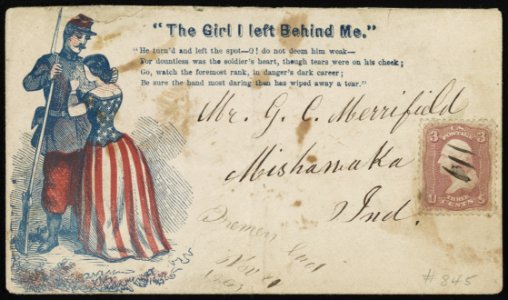 "The Girl I left Behind Me."
"He turn'd and left the spot—O! do not deem him weak—
For dountless was the soldier's heart, though tears were on his cheek;
Go, watch the foremost rank, in danger's dark career;
Be sure the hand most daring there has wiped away a tear."
Mr. G. C. Merrifield
Mishawaka
Ind.
U.S. POSTAGE
3 3
THREE CENTS
Bremen Ind
Nov
#845